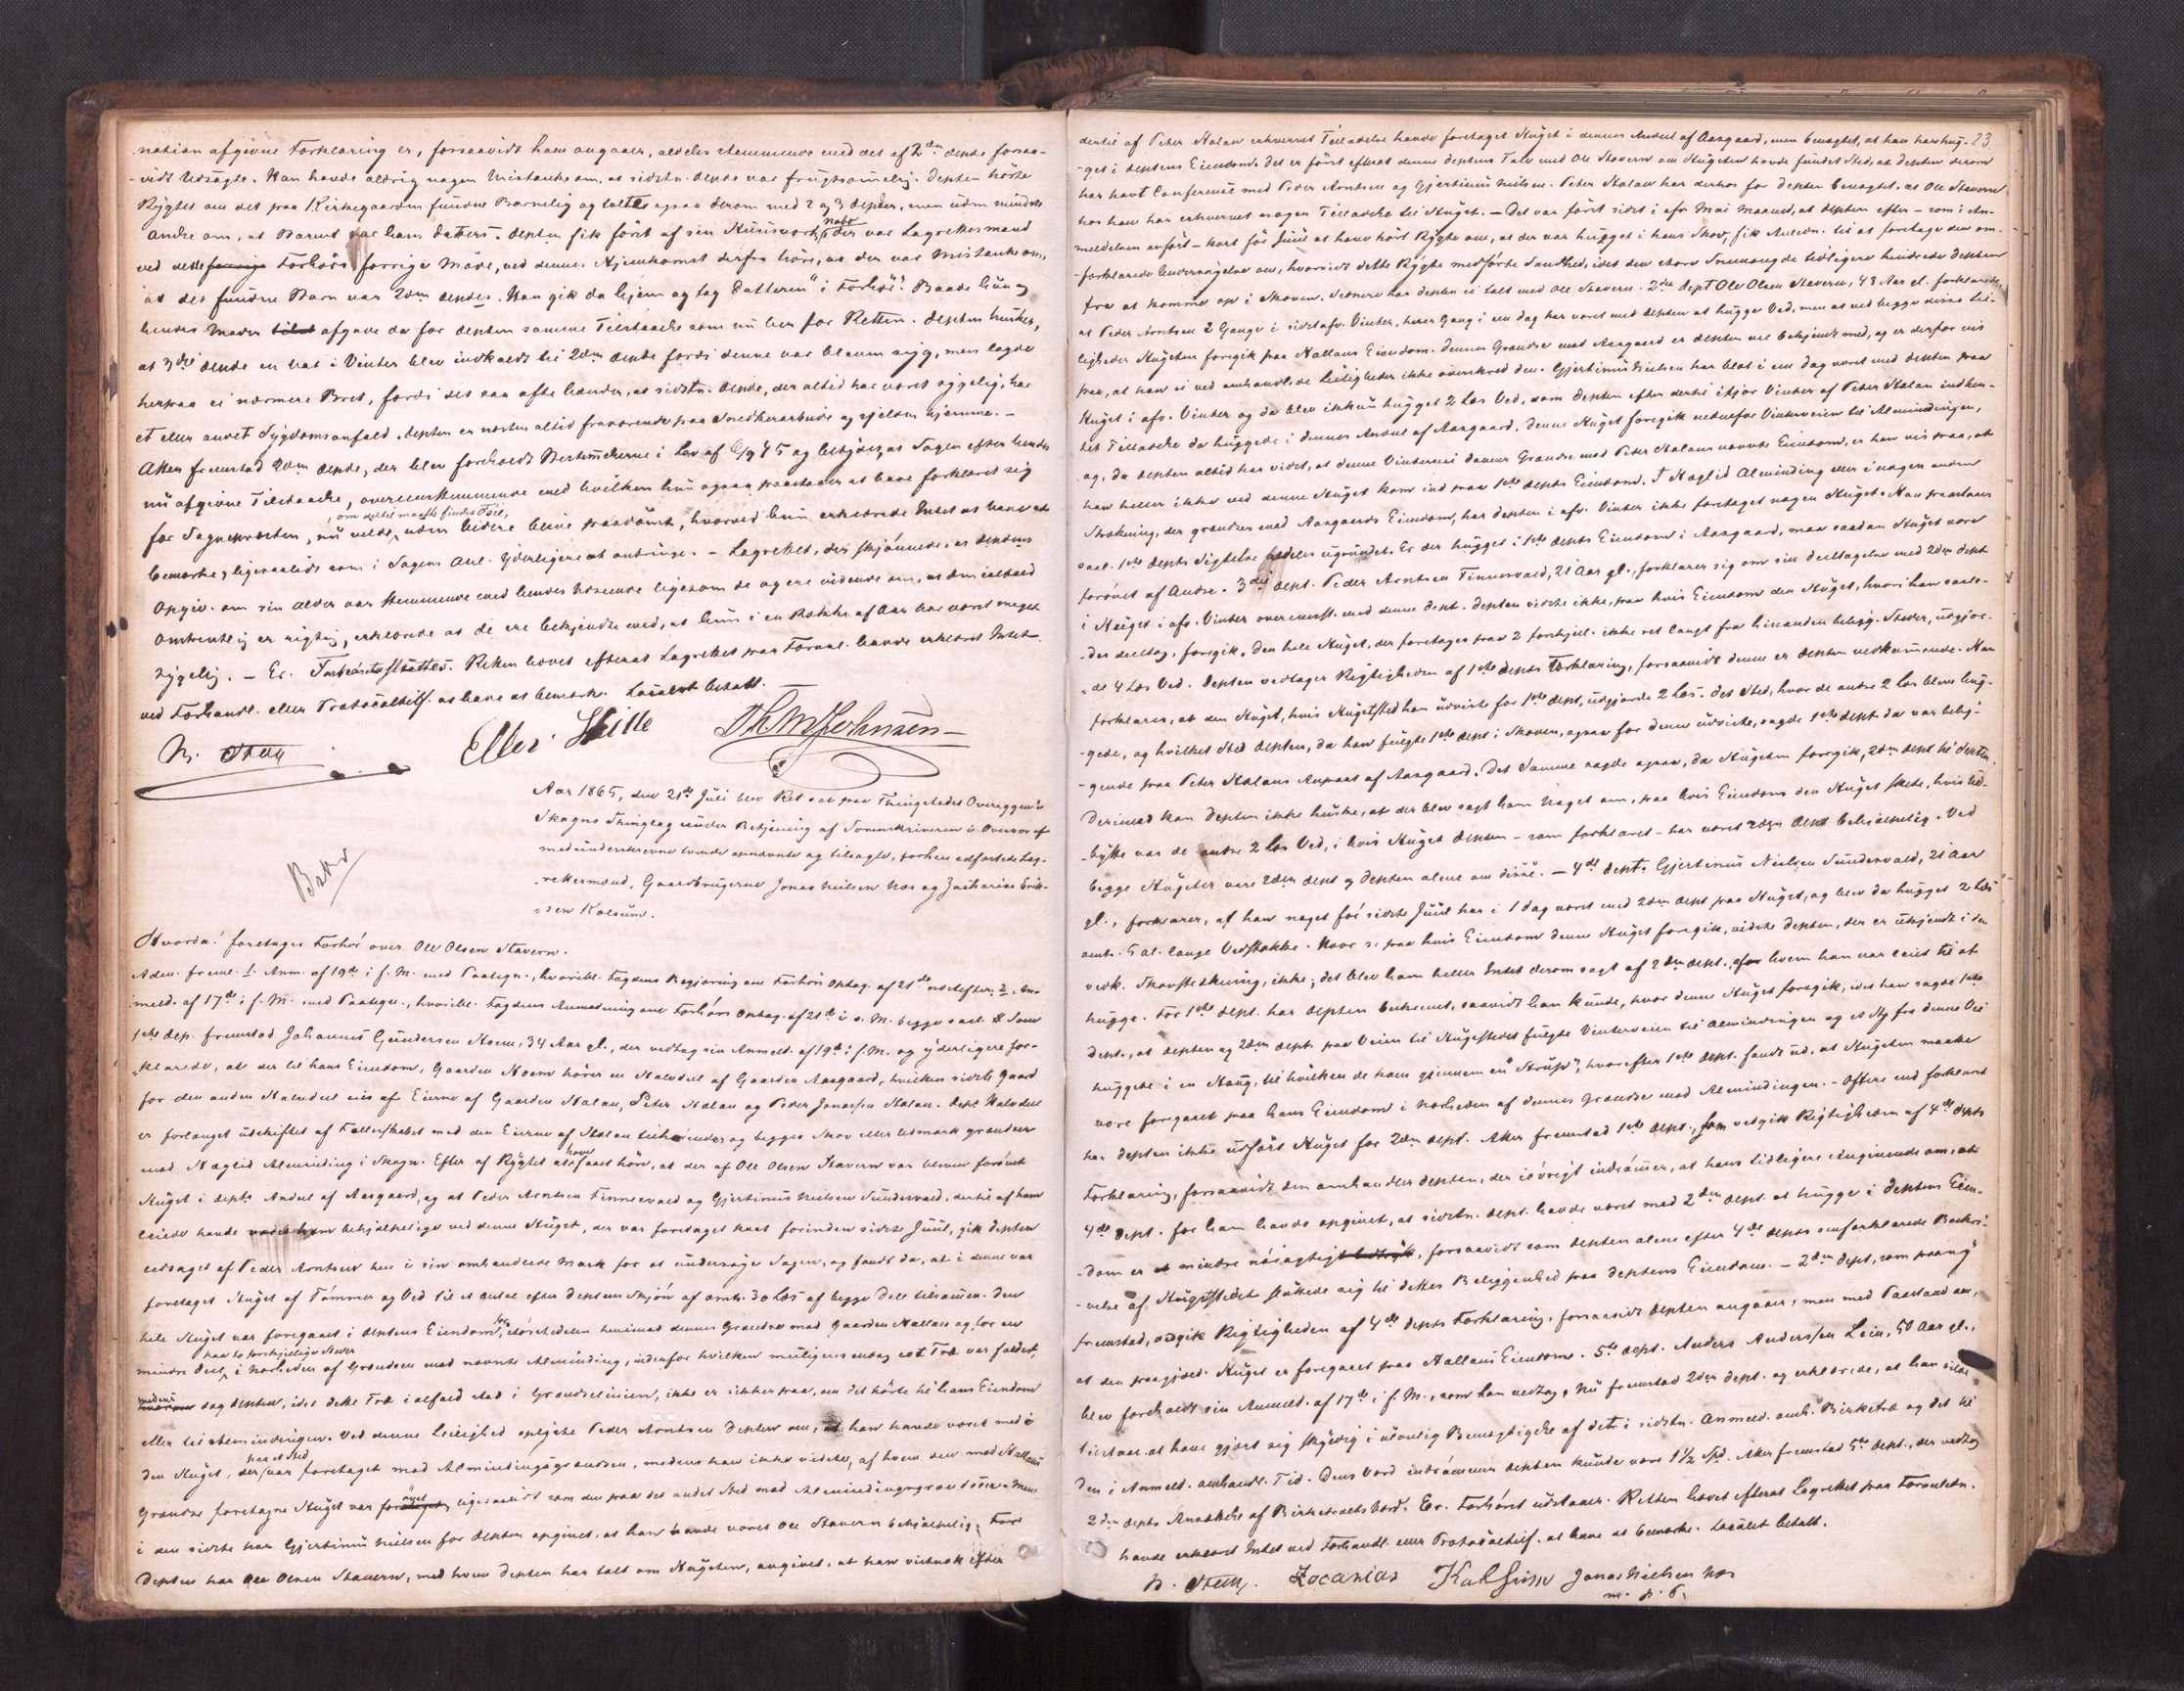 nation afgivne Forklaring er, forsaavidt ham angaaer, aldeles stemmende med det af 2den depte forsaa-
vidt Udsagte. Han havde aldrig nogen Mistanke om, at sidstn. depte var frugtsommelig. Depten hörte
Rygtet om det paa Kirkegaarden fundne Barnelig og talte ogsaa derom med 2 og 3 depter, men uden mindste
Anelse om, at Barnet var hans Datters. Depten fik först af sin Huusvert, der var Lagrettesmand
nabo
ved dette forrige Forhörs forrige Möde, ved dennes Hjemkomst derfra höre, at der var Mistanke om,
at det fundne Barn var 2den deptes. Han gik da hjem og tog Datteren "i Forhör". Baade hun og
hendes Moder afgave da for depten samme Tilstaaelse som nu her for Retten. Depten husker,
at 3die depte en Nat i Vinter blev indkaldt til 2den depte fordi denne var bleven syg, men lagde
herpaa ei nærmere Bret, fordi det saa ofte hænder, at sidstn. depte, der altid har været sygelig, har
et eller andet Sygdomsanfald. Depten er næsten altid fraværende paa Snedkerarbeide og sjelden hjemme. –
Atter fremstod 2den depte, der blev foreholdt Bestemmelserne i Lov af 6/9 45 og betydet, at Sagen efter hendes
nu afgivne Tilstaaelse, overeensstemmende med hvilken hun ogsaa paastaaer at have forklaret sig
, om dertil maatte findes Föie,
for Sognepræsten, nu vilde, uden videre blive paadömt, hvorved hun erklærede Intet at have at
bemærke, ligesaalidt som i Sagens Anl. yderligere at anbringe. – Lagrettet, der skjönnede, at deptens
Opgiv. om sin Alder var stemmende med hendes Udseende ligesom de ogere vidende om, at den ialtfald
omtrentlig er rigtig, erklærede at de ere bekjendte med, at hun i en Række af Aar har været meget
sygelig. – Er. Forhöret sluttet. Retten hævet efterat Lagrettet paa Foranl. havde erklæret Intet
ved Forhandl. eller Protocoltilf. at have at bemærke. Localet betalt. –
N. Stall Eller Hille Th M Johansen
Aar 1865, den 21de Juli blev Ret sat paa Thingstedet Overeggen i
Skogns Thinglag under Betjening af Sorenskriveren i Overvær af
medunderskrevne tvende opnævnte og tilsagte, forhen edfæstede Lag-
rettesmænd, Gaardbrugerne Jonas Nielsen Næs og Zacharias Erik-
sen Kolsum.
Hvorda! foretoges Forhör over Ole Olsen Stavern.
Adm. freml. 1. Anm. af 19de i f. M. med Paategn., hvoribl. Fogdens Begjæring om Forhörs Optag. af 21de næstefter; 2. An-
meld. af 17de i f. M. med Paategn., hvoribl. Fogdens Anmodning om Forhörs Optag. af 21de i s. M. begge saal. # Som
1ste dep. fremstod Johannes Gundersen Hoem, 34 Aar gl., der vedtog sin Anmeld. af 19de i f. M. og yderligere for-
klarede, at der til hans Eiendom, Gaarden Hoem hörer en Halvdeel af Gaarden Aasgaard, hvilken sidste Gaard
for den anden Halvdeel eies af Eierne af Gaarden Stalan, Peter Stalan og Peder Jonassen Stalan. Dept. Halvdeel
er forlænget udskiftet af Fælleskabet med den Eierne af Stalan tilhörende og begges Skov eller Udmark grændser
mod Hæglid Alminding i Skogn. Efter af Rygtet at have faaet höre, at der af Ole Olsen Stavern var bleven forövet
Hugst i depts Andeel af Aasgaard, og at Peder Arntsen Finnesvald og Gjertinus Nielsen Sundervald, dertil af ham
leiede havde været ham behjelpelige ved denne Hugst, der var foretaget kort forinden sidste Juul, gik depten
ledsaget af Peder Arntsen hen i sin omhandlede Mark for at undersöge Sagen, og fandt da, at i denne var
foretaget Hugst af Tömmer og Ved til et Antal efter deptens Skjön af omtr. 30 Læs af begge Dele tilsammen. Den
hele Hugst var foregaaet i deptens Eiendom, for störstedelen henimod dennes Grændse mod Gaarden Hallan og for en
paa to forskjellige Steder
mindre Deel, i Nærheden af Grændsen mod nævnte Alminding, indenfor hvilken muligens endog eet Træ var fældet,
medens
dog depten, idet dette Træ i alfald stod i Grændselinien, ikke er sikker paa, om det hörte til hans Eiendom
eller til Almindingen. Ved denne Leilighed oplyste Peder Arntsen depten om, at han havde været med i
paa et Sted
den Hugst, der var foretaget mod Almindingsgrændsen, medens han ikke vidste, af hvem den mod Hallans
Grændse foretagne Hugst var forövet, ligesaalidt som den paa det andet Sted mod Almindingsgrændsen. Men
i den sidste har Gjertinus Nielsen for depten opgivet, at han havde været Ole Stavern behjelpelig. For
depten har Ole Olsen Stavern, med hvem depten har talt om Hugsten, angivet, at han vistnok efter
23.
dertil af Peter Stalan erhvervet Tilladelse havde foretaget Hugst i dennes Andeel af Aasgaard, men benegtet, at han har hug-
get i deptens Eiendom. Det er först efterat denne deptens Tale med Ole Stavern om Hugsten havde fundet Sted, at depten derom
har havt Conference med Peder Arntsen og Gjertinus Nielsen. Peter Stalan har derhos for depten benegtet, at Ole Stavern
hos ham har erhvervet nogen Tilladelse til Hugst. – Det var först sidst i afv. Mai Maaned, at depten efter – som i An-
meldelsen anfört – kort för Juul at have hört Rygte om, at der var hugget i hans Skov, fik Anledn. til at foretage den om-
forklarede Undersögelse om, hvorvidt dette Rygte medförte Sandhed, idet den store Snemængde tidligere hindrede depten
fra at komme op i Skoven. Siden har depten ei talt med Ole Stavern. 2den dept Ole Olsen Stavern, 43 Aar gl. forklarede,
at Peder Arntsen 2 Gange i sidstafv. Vinter, hver Gang i een Dag har været med depten at hugge Ved, men at ved begge disse Lei-
ligheder Hugsten foregik paa Hallans Eiendom. Dennes Grændse mod Aasgaard er depten vel bekjendt med, og er derfor vis
paa, at han ei ved omhandlede Leiligheder ikke overskred den. Gjertinus Nielsen har blot i een Dag været med depten paa
Hugst i afv. Vinter og da blev ikkun hugget 2 Læs Ved, som depten efter dertil ifjor Vinter af Peter Stalan indhen-
tet Tilladelse da huggede i dennes Andeel af Aasgaard. Denne Hugst foregik nedenfor Vinterveien til Almindingen,
og, da depten altid har vidst, at denne Vintervei danner Grændse mod Peter Stalans nævnte Eiendom, er han vis paa, at
han heller ikke ved denne Hugst kom ind paa 1ste depts Eiendom. I Hæglid Alminding eller i nogen anden
Strækning, der grændser mod Aasgaards Eiendom, har depten i afv. Vinter ikke foretaget nogen Hugst. Han paastaaer
saal. 1ste depts Sigtelse aldeles ugrundet. Er der hugget i 1ste depts Eiendom i Aasgaard, maa saadan Hugst være
forövet af Andre. 3die dept. Peder Arntsen Finnesvald, 21 Aar gl., forklarer sig om sin Deeltagelse med 2den dept
i Hugst i afv. Vinter overeensst. med denne dept. Depten vidste ikke, paa hvis Eiendom den Hugst, hvori han saale-
des deeltog, foregik. Den hele Hugst, der foretoges paa 2 forskjell. ikke ret langt fra hinanden belegg. Steder, udgjor-
de 4 Læs Ved. Depten vedtager Rigtigheden af 1ste depts Forklaring, forsaavidt denne er depten vedkommende. Han
forklarer, at den Hugst, hvis Hugststed han udviste for 1ste dept, udgjorde 2 Læs. Det Sted, hvor de andre 2 Læs bleve hug-
gede, og hvilket Sted depten, da han fulgte 1ste dept i Skoven, ogsaa for denne udviste, sagde 1ste dept. da var belig-
gende paa Peter Stalans Anpart af Aasgaard. Det Samme sagde ogsaa, da Hugsten foregik, 2den dept til depten.
Derimod kan depten ikke huske, at der blev sagt ham Noget om, paa hvis Eiendom den Hugst skete, hvis Ud-
bytte var de andre 2 Læs Ved, i hvis Hugst depten – som forklaret – har været 2den dept behjelpelig. Ved
begge Hugster vare 2den dept og depten alene om disse. – 4de dept. Gjertinus Nielsen Sundervald, 21 Aar
gl., forklarer, at han noget för sidste Juul har i 1 Dag været med 2den dept paa Hugst, og blev da hugget 2 Læs
omtr. 5 al. lange Vedstokke. Hvor ɔ: paa hvis Eiendom denne Hugst foregik, vidste depten, der er ukjendt i den
vedk. Skovstrækning, ikke; det blev ham heller Intet derom sagt af 2den dept., af hvem han var leiet til at
hugge. For 1ste dept. har depten betegnet, saavidt han kunde, hvor denne Hugst foregik, idet han sagde 1ste
dept., at depten og 2den dept. paa Veien til Hugststedet fulgte Vinterveien til Almindingen og et Stk fra denne Vei
huggede i en Haug, til hvilken de kom gjennem en "Strup", hvorefter 1ste dept. fandt ud, at Hugsten maatte
være foregaaet paa hans Eiendom i Nærheden af dennes Grændse mod Almindingen. – Oftere end forklaret
har depten ikke udfört Hugst for 2den dept. Atter fremstod 1ste dept., som vedgik Rigtigheden af 4de depts
Forklaring, forsaavidt den omhandler depten, der iövrigt indrömmer, at hans tidligere Angivende om, at
4de dept. for ham havde opgivet, at sidstn. dept. havde været med 2den dept. at hugge i deptens Eien-
dom er mindre nöiagtigt, forsaavidt som depten alene efter 4de depts omforklarede Beskri-
velse af Hugststedet sluttede sig til dettes Beliggenhed paa deptens Eiendom. – 2den dept, som paany
fremstod, vedgik Rigtigheden af 4de depts Forklaring, forsaavidt depten angaaer, men med Paastand om,
at den paagjeld. Hugst er foregaaet paa Hallans Eiendom. 5te dept. Anders Anderssen Lein, 50 Aar gl.,
blev foreholdt sin Anmeld. af 17de i f. M., som han vedtog. Nu fremstod 2den dept. og erklærede, at han vilde
tilstaae at have gjort sig skyldig i ulovlig Bemægtigelse af det i sidstn. Anmeld. omh. Birketræ og det til
den i Anmeld. omhandl. Tid. Dens Værd indrömmer depten kunde være 1½ Spd. Atter fremstod 5te dept., der vedtog
2den depts Ansættelse af Birketræets Værd. Er. Forhöret udstaaer. Retten hævet efterat Lagrettet paa Foranledn.
havde erklæret Intet ved Forhandl. eller Protocoltilf. at have at bemærke. Localet betalt.
N. Stall. Zocarias Kolsum Jonas Nielsen Næs
m. p. P.